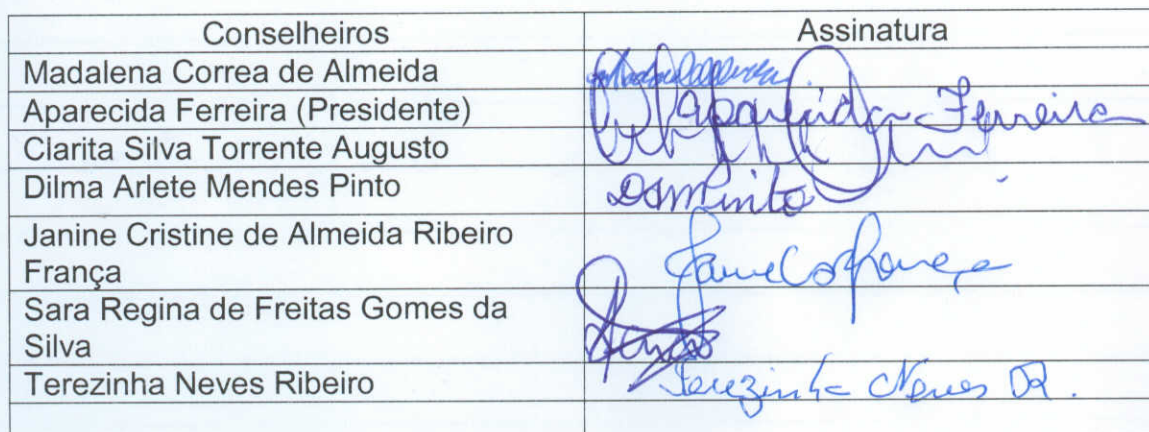 Conselheiros Assinatura
Madalena Correa de Almeida
Aparecida Ferreira (Presidente) Aparecida Ferreira
Clarita Silva Torrente Augusto
Dilma Arlete Mendes Pinto
Janine Cristine de Almeida Ribeiro
França
Sara Regina de Freitas Gomes da
Silva
Terezinha Neves Ribeiro Terezinha Neves R.